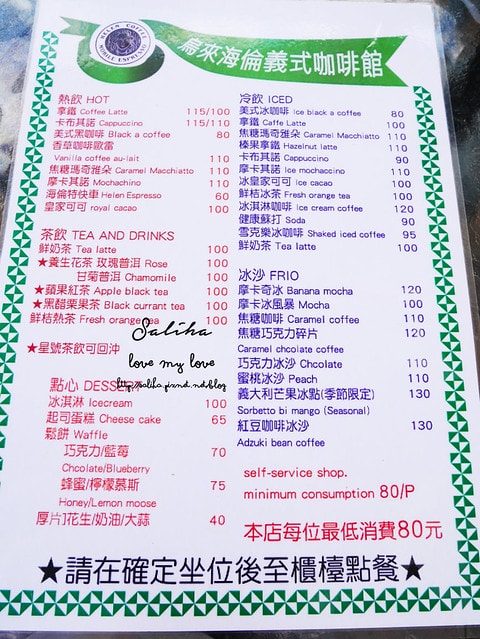 HELEN COFFEE
MOBILE ESPRESSO
烏來海倫義式咖啡館
熱飲 HOT
拿鐵 Coffee Latte 115/100
卡布其諾 Cappuccino 115/110
美式黑咖啡 Black a coffee 80
香草咖啡歐雷
Vanilla coffee au-lait 110
焦糖瑪奇雅朵 Caramel Macchiatto 110
摩卡其諾 Mochachino 110
海倫特快車 Helen Espresso 60
皇家可可 royal cacao 100
茶飲 TEA AND DRINKS
鮮奶茶 Tea latte 100
★養生花茶 玫瑰普洱 Rose 100
甘菊普洱 Chamomile 100
★蘋果紅茶 Apple black tea 100
★黑醋栗果茶 Black currant tea 100
鮮桔熱茶 Fresh orange tea 100
★星號茶飲可回沖
點心 DESSERT
冰淇淋 Icecream 100
起司蛋糕 Cheese cake 65
鬆餅 Waffle
巧克力/藍莓 70
Chcolate/Blueberry
蜂蜜/檸檬慕斯 75
Honey/Lemon moose
厚片]花生/奶油/大蒜 40
冷飲 ICED
美式冰咖啡 Ice black a coffee 80
拿鐵 Caffe Latte 100
焦糖瑪奇雅朵 Caramel Macchiatto 110
榛果拿鐵 Hazelnut latte 100
卡布其諾 Cappuccino 90
摩卡其諾 Ice mochaccino 110
冰皇家可可 Ice cacao 100
鮮桔冰茶 Fresh orange tea 100
冰淇淋咖啡 Ice cream coffee 120
健康蘇打 Soda 90
雪克樂冰咖啡 Shaked iced coffee 95
鮮奶茶 Tea latte 100
冰沙 FRIO
摩卡奇冰 Banana mocha 120
摩卡冰風暴 Mocha 100
焦糖咖啡 Caramel coffee 110
焦糖巧克力碎片 120
Caramel chcolate coffee
巧克力冰沙 Chcolate 110
蜜桃冰沙 Peach 110
義大利芒果冰點(季節限定) 130
Sorbetto bi mango (Seasonal)
紅豆咖啡冰沙 130
Adzuki bean coffee
self-service shop.
minimum consumption 80/P
本店每位最低消費80元
★請在確定坐位後至櫃檯點餐★
Saliha
love my love
http://saliha.pixnet.net/blog